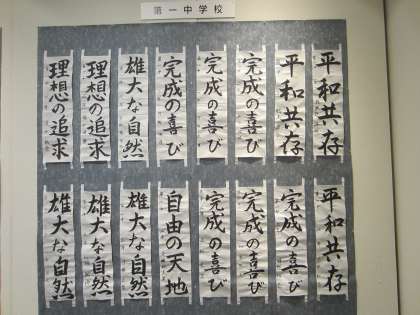 第一中学校
平和共存
平和共存
完成の喜び
完成の喜び
完成の喜び
雄大な自然
理想の追求
理想の追求
平和共存
完成の喜び
完成の喜び
完成の喜び
自由の天地
雄大な自然
雄大な自然
雄大な自然